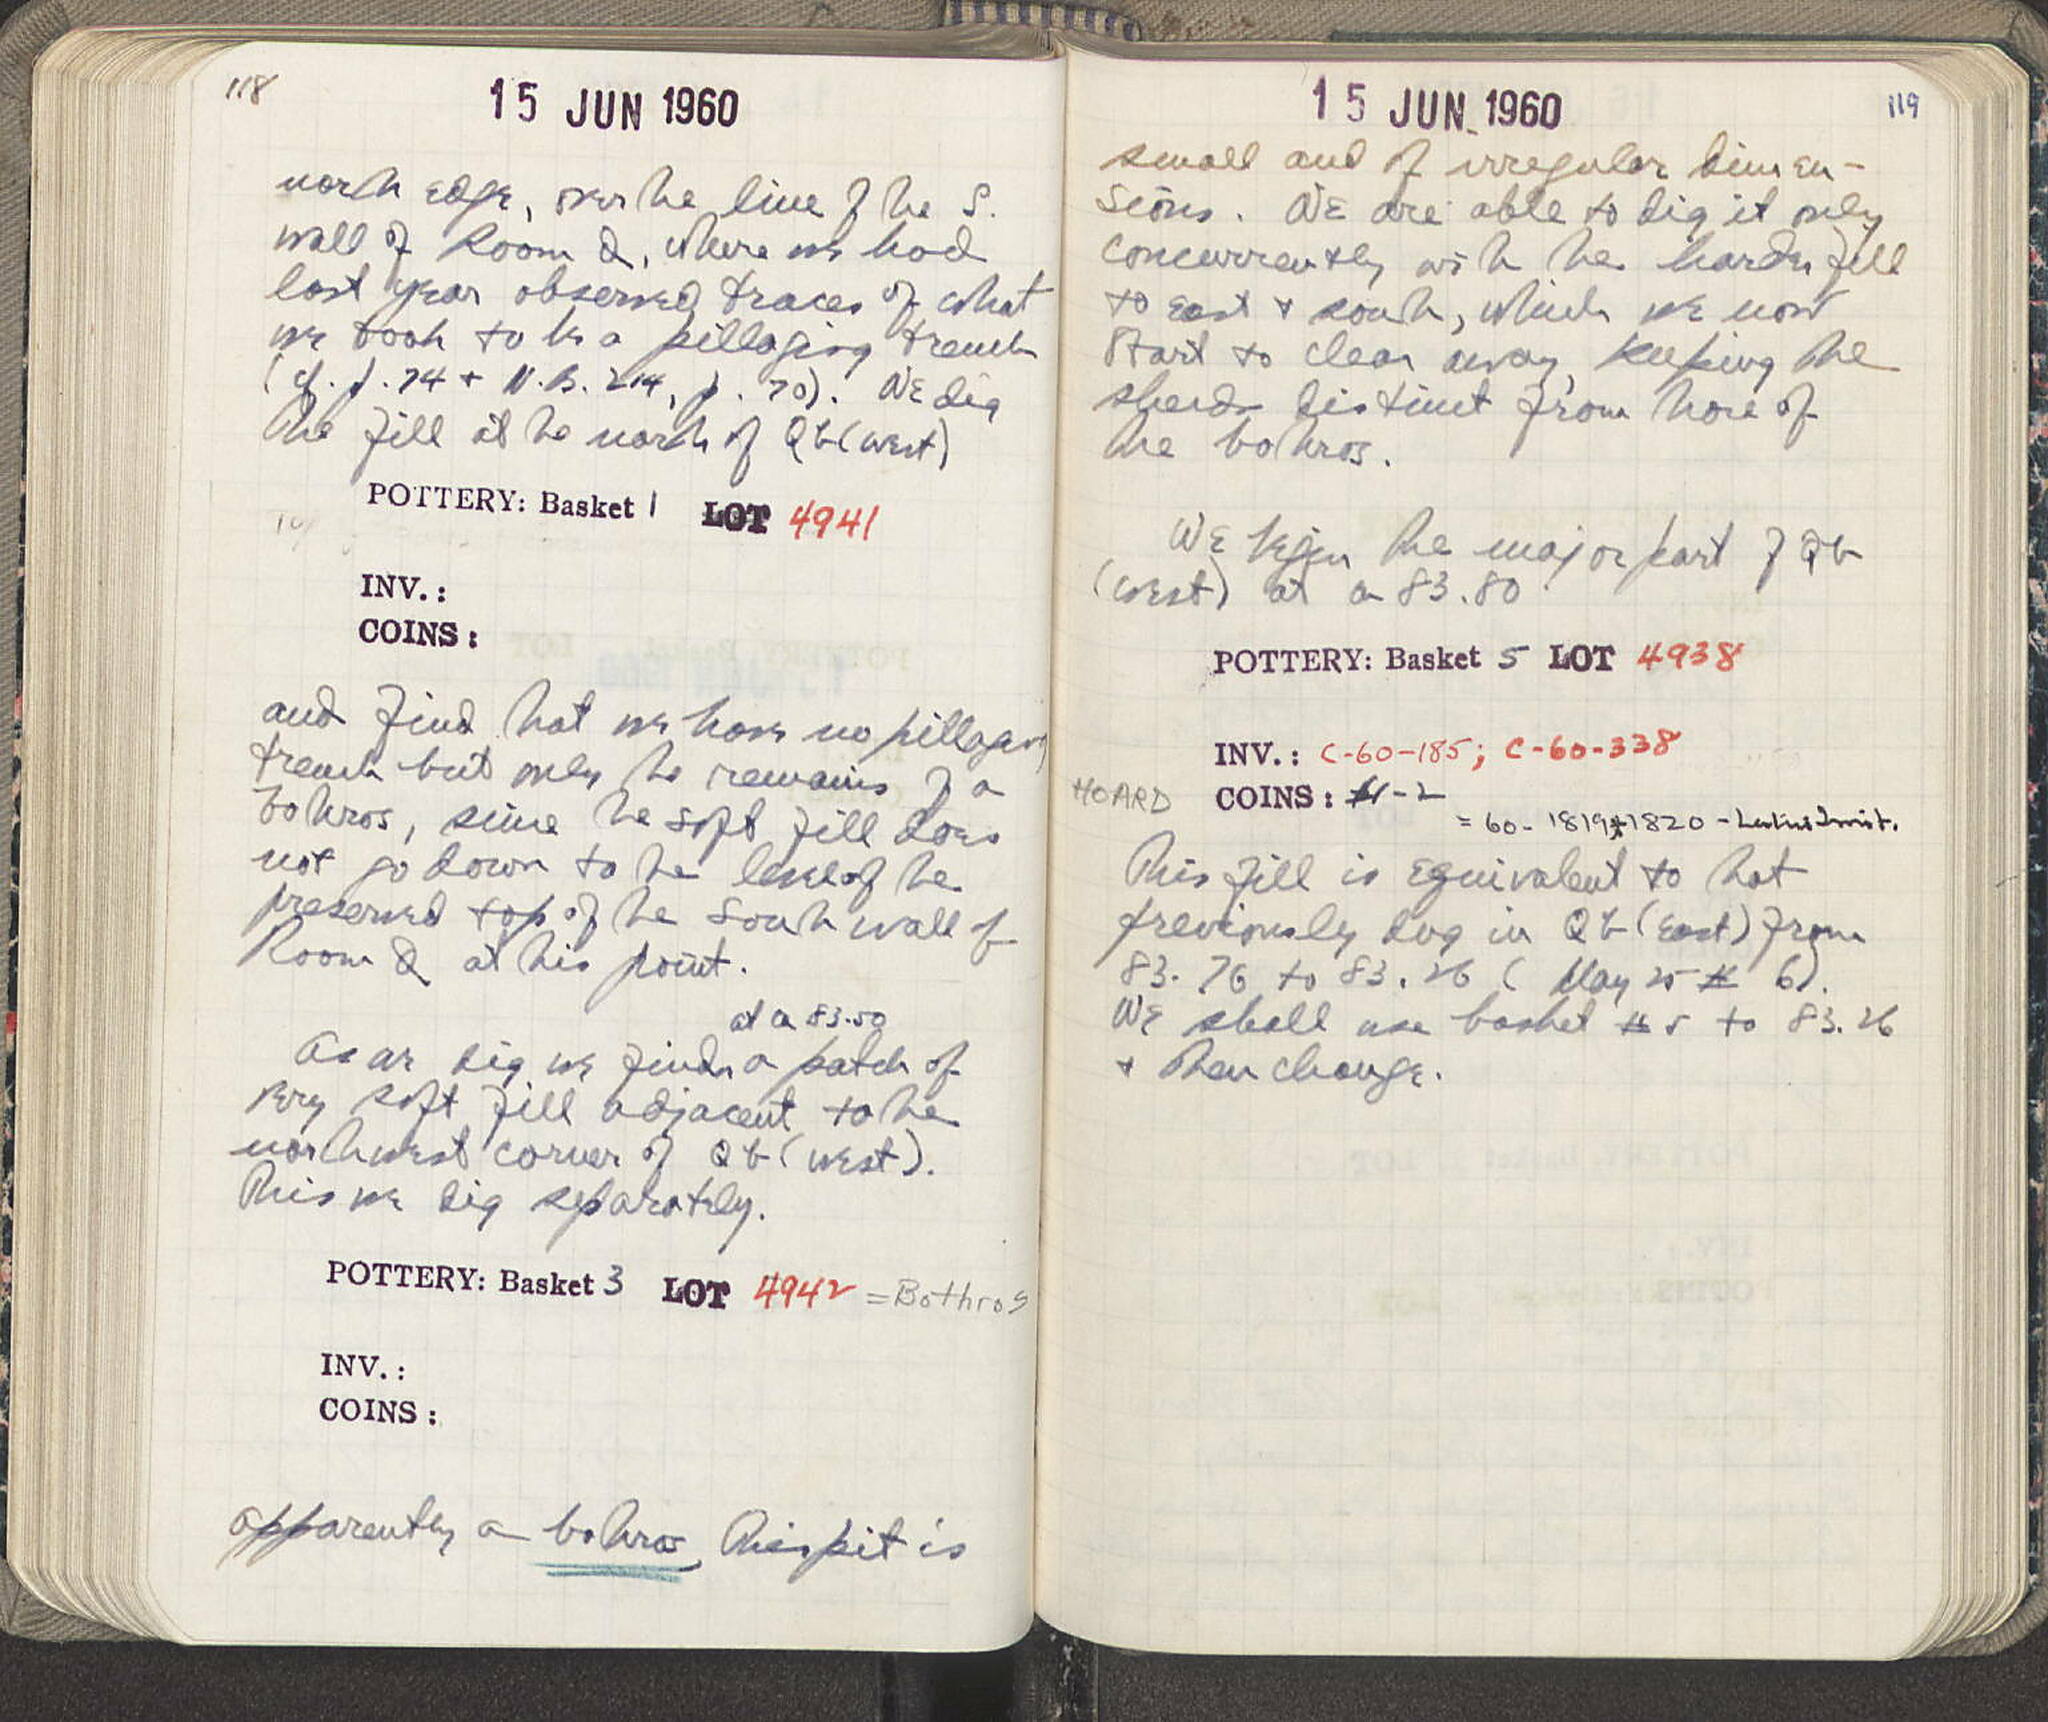 118
15 JUN 1960
north edge, over the line of the S.
wall of Room Q, where we had
last year observed traces of what
we took to be a pillaging trench
(cf. p. 74 + N.B. 214, p. 70). We dig
the fill at the north of Qb (west)
POTTERY: Basket 1 LOT 4941
INV.:
COINS:
and find that we have no pillaging
trench but only the remains of a
bothros, since the soft fill does
not go down to the level of the
preserved top of the south wall of
Room Q at this point.
at a 83.50
As we dig we find a patch of
very soft fill adjacent to the
northwest corner of Qb (west).
This we dig separately.
POTTERY: Basket 3 LOT 4942 = Bothros
INV.:
COINS:
apparently a bothros, this pit is
15 JUN 1960
119
small and of irregular dimen-
sions. We are able to dig it only
concurrently with the harder fill
to east + south, which we now
start to clear away, keeping the
sherds distinct from those of
the bothros.
We begin the major part of Qb
(west) at a 83.80
POTTERY: Basket 5 LOT 4938
INV.: C-60-185; C-60-338
HOARD COINS: #1-2
= 60-1819+1820 -
This fill is equivalent to that
previously dug in Qb (east) from
83.76 to 83.26 (May 25 # 6).
We shall use basket #5 to 83.26
+ then change.